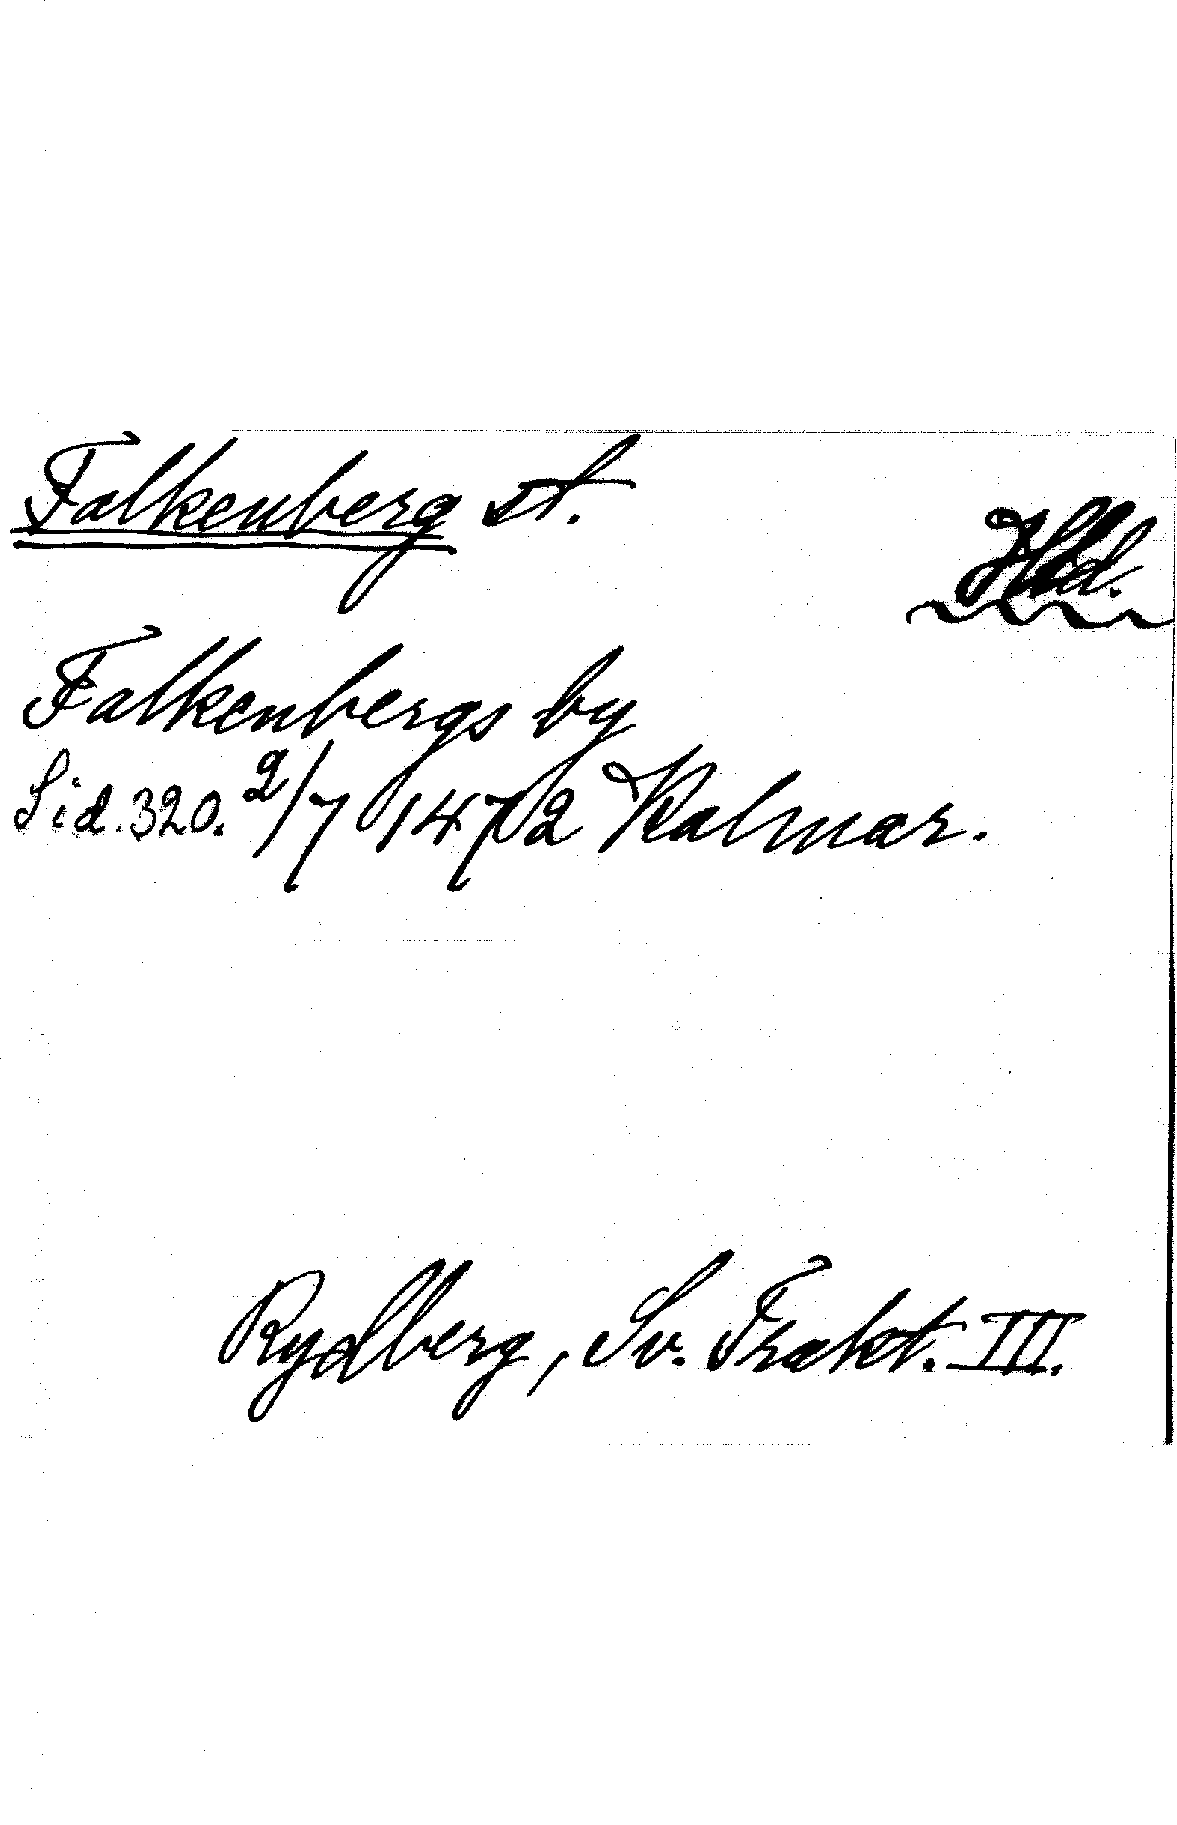 Falkenberg st.
Hlld.
Falkenbergs by
Sid. 320. 2/7 1472 Kalmar.
Rydberg, Sv. Trakt. III.